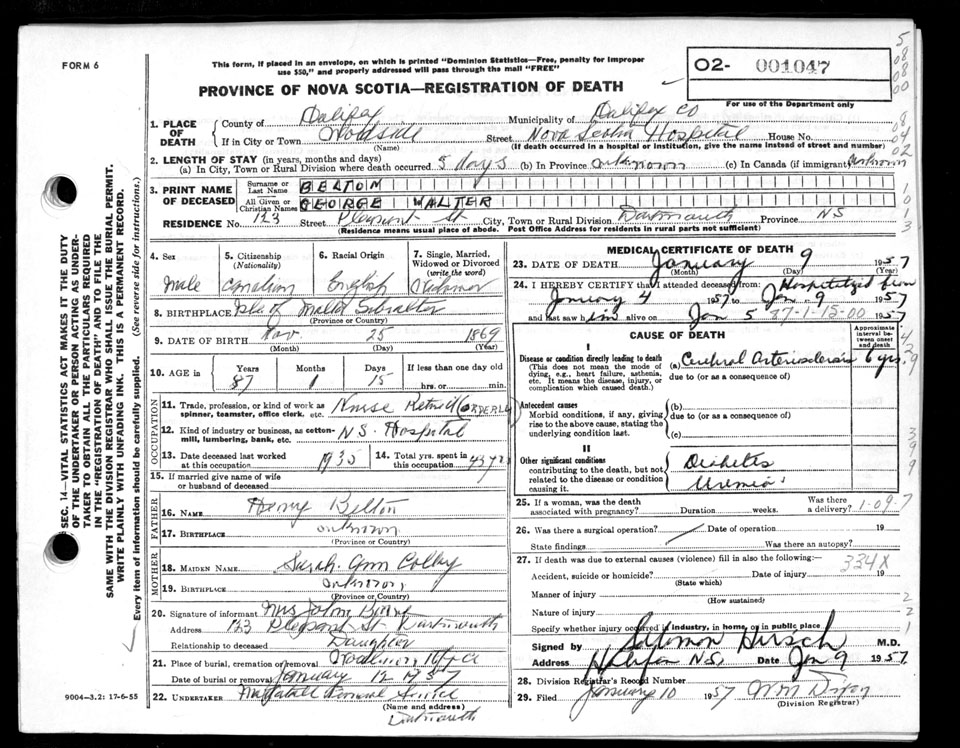 FORM 6
This form, if placed in an envelope, on which is printed "Dominion Statistics—Free, penalty for improper
use $50," and properly addressed will pass through the mail "FREE"
O2- 001047
PROVINCE OF NOVA SCOTIA—REGISTRATION OF DEATH
For use of the Department only
1. PLACE OF DEATH
County of Halifax Municipality of Halifax Co
If in City or Town Woodside Street Nova Scotia Hospital House No.
(Name) (If death occurred in a hospital or institution, give the name instead of street and number)
2. LENGTH OF STAY (in years, months and days)
(a) In City, Town or Rural Division where death occurred 5 days (b) In Province unknown (c) In Canada (if immigrant) unknown
3. PRINT NAME OF DECEASED
Surname or Last Name BELTON
All Given or Christian Names GEORGE WALTER
RESIDENCE No. 123 Street Pleasant St City, Town or Rural Division Dartmouth Province NS
(Residence means usual place of abode. Post Office Address for residents in rural parts not sufficient)
4. Sex
Male
5. Citizenship
(Nationality)
Canadian
6. Racial Origin
English
7. Single, Married,
Widowed or Divorced
(write the word)
Widower
8. BIRTHPLACE Isle of Malta
(Province or Country)
9. DATE OF BIRTH Nov. 25 1869
(Month) (Day) (Year)
10. AGE in
Years Months Days If less than one day old
87 1 15 hrs. or min.
OCCUPATION
11. Trade, profession, or kind of work as
spinner, teamster, office clerk, etc. Nurse Retired (ORDERLY)
12. Kind of industry or business, as cotton-
mill, lumbering, bank, etc. N.S. Hospital
13. Date deceased last worked
at this occupation 1935
14. Total yrs. spent in
this occupation 43 yrs
15. If married give name of wife
or husband of deceased
FATHER
16. NAME Harry Belton
17. BIRTHPLACE unknown
(Province or Country)
MOTHER
18. MAIDEN NAME Sarah Ann Colby
19. BIRTHPLACE unknown
(Province or Country)
20. Signature of informant Mrs John
Address 123 Pleasant St Dartmouth
Relationship to deceased Daughter
21. Place of burial, cremation or removal
Date of burial or removal January 12 1957
22. UNDERTAKER Funeral Service
(Name and address)
Dartmouth
9004—3.2: 17-6-55
MEDICAL CERTIFICATE OF DEATH
23. DATE OF DEATH January 9 1957
(Month) (Day) (Year)
24. I HEREBY CERTIFY that I attended deceased from: Hospitalized from
January 4 1957 to Jan 9 1957
and last saw him alive on Jan 5 1957
27-1-15-00
CAUSE OF DEATH
Approximate interval between onset and death
I
Disease or condition directly leading to death
(This does not mean the mode of
dying, e.g., heart failure, asthenia,
etc. It means the disease, injury, or
complication which caused death.)
(a) Cerebral Arteriosclerosis 6 yrs.
due to (or as a consequence of)
Antecedent causes
Morbid conditions, if any, giving
rise to the above cause, stating the
underlying condition last.
(b)
due to (or as a consequence of)
(c)
II
Other significant conditions
contributing to the death, but not
related to the disease or condition
causing it.
Diabetes
Uremia
25. If a woman, was the death
associated with pregnancy? Duration weeks. Was there
a delivery? 1-09
26. Was there a surgical operation? Date of operation 19
State findings Was there an autopsy?
27. If death was due to external causes (violence) fill in also the following:—
334X
Accident, suicide or homicide? Date of injury 19
(State which)
Manner of injury
(How sustained)
Nature of injury
Specify whether injury occurred in industry, in home, or in public place
Signed by Salomon Hirsch M.D.
Address Halifax N.S. Date Jan 9 1957
28. Division Registrar's Record Number
29. Filed January 10 1957
(Division Registrar)
SEC. 14—VITAL STATISTICS ACT MAKES IT THE DUTY
OF THE UNDERTAKER OR PERSON ACTING AS UNDER-
TAKER TO OBTAIN ALL THE PARTICULARS REQUIRED
IN THE "REGISTRATION OF DEATH" AND TO FILE THE
SAME WITH THE DIVISION REGISTRAR WHO SHALL ISSUE THE BURIAL PERMIT.
WRITE PLAINLY WITH UNFADING INK. THIS IS A PERMANENT RECORD.
Every item of information should be carefully supplied. (See reverse side for instructions.)